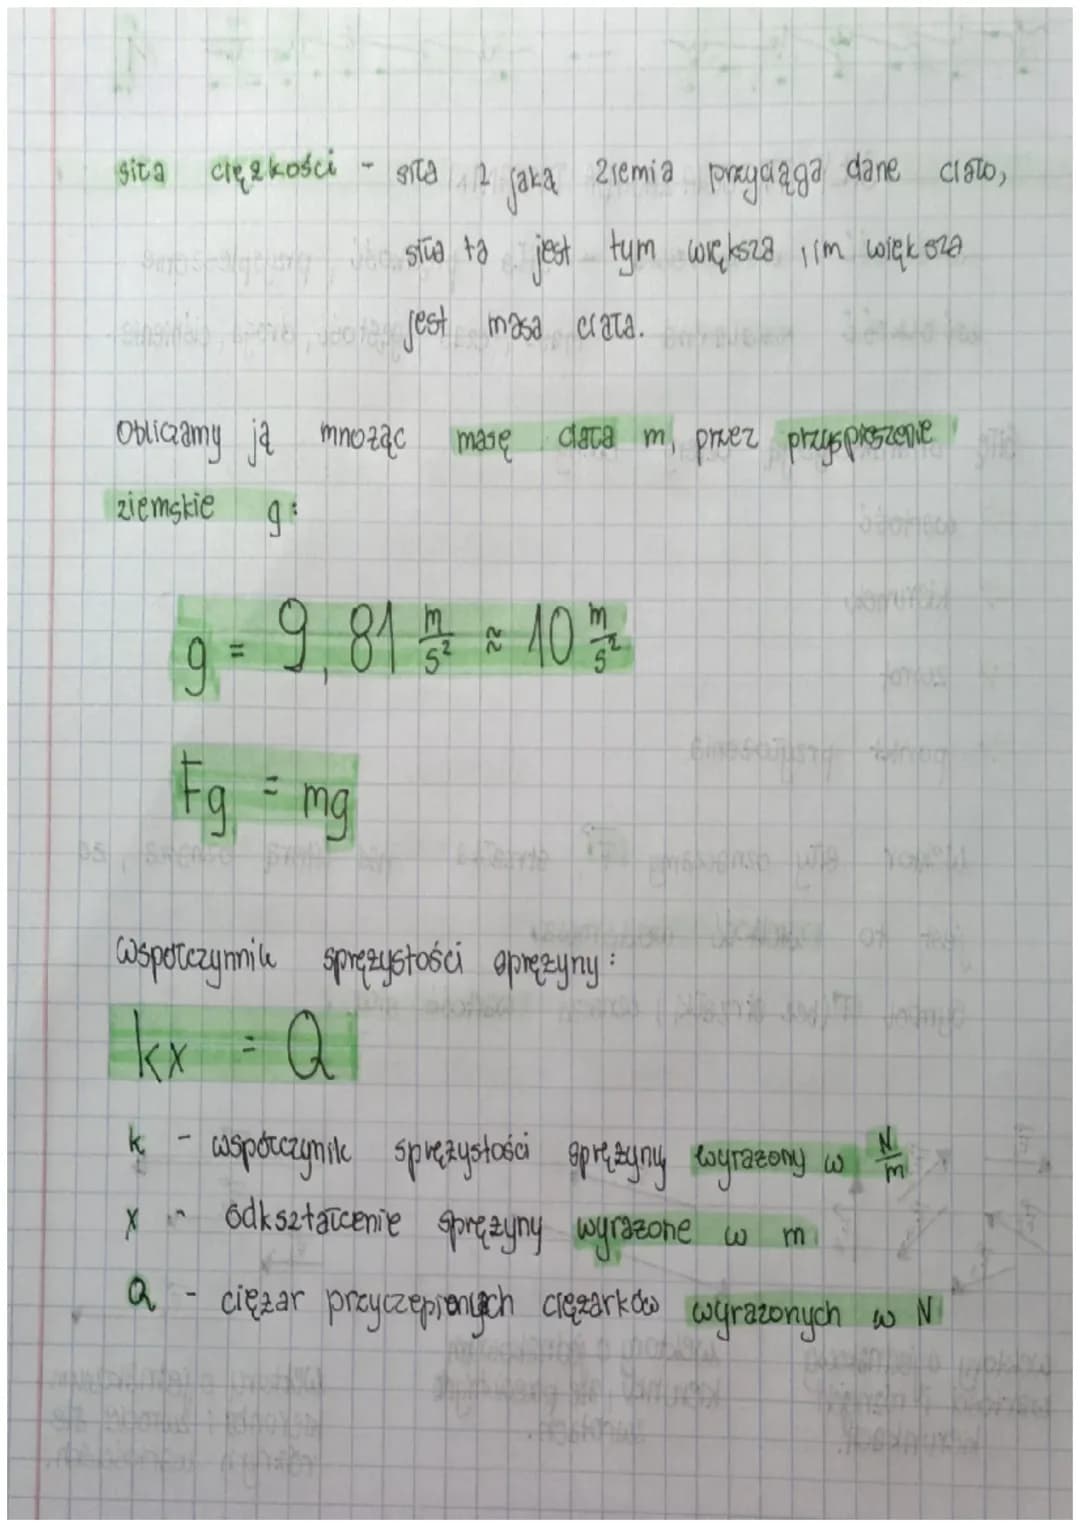 siła ciężkości - siła z jaką ziemia przyciąga dane ciało,
siła ta jest tym większa, im większa
jest masa ciała.
Obliczamy ją mnożąc masę ciała m, przez przyspieszenie
ziemskie g:
g = 9,81 m/s² ≈ 10 m/s²
Fg = mg
Współczynnik sprężystości sprężyny:
kx = Q
k - współczynik sprężystości sprężyny wyrażony w N/m
x - odkształcenie sprężyny wyrażone w m
Q - ciężar przyczepionych ciężarków wyrażonych w N